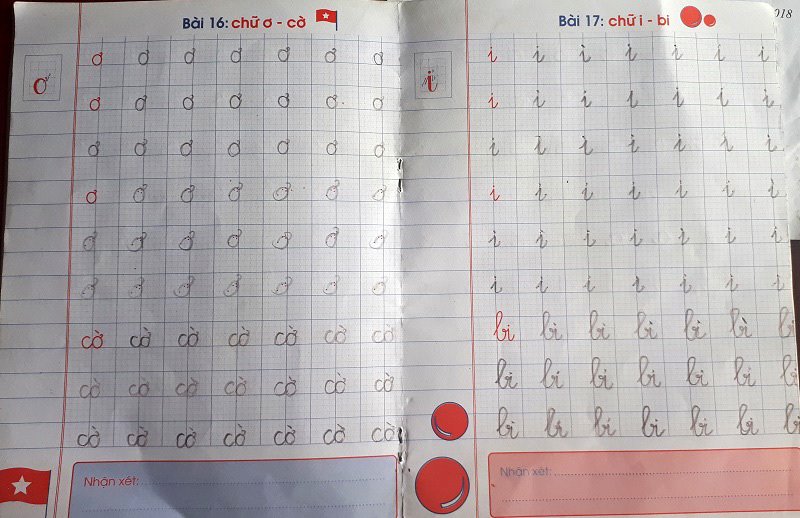 Bài 16: chữ ơ - cờ
ơ
ơ ơ ơ ơ ơ ơ ơ
ơ ơ ơ ơ ơ ơ ơ
ơ ơ ơ ơ ơ ơ ơ
ơ ơ ơ ơ ơ ơ ơ
ơ ơ ơ ơ ơ ơ ơ
ơ ơ ơ ơ ơ ơ ơ
cờ cờ cờ cờ cờ cờ cờ
cờ cờ cờ cờ cờ cờ cờ
cờ cờ cờ cờ cờ cờ cờ
Nhận xét:
Bài 17: chữ i - bi
018
i
i i i i i i i
i i i i i i i
i i i i i i i
i i i i i i i
i i i i i i i
i i i i i i i
bi bi bi bi bi bi bi
bi bi bi bi bi bi bi
bi bi bi bi bi bi bi
Nhận xét: